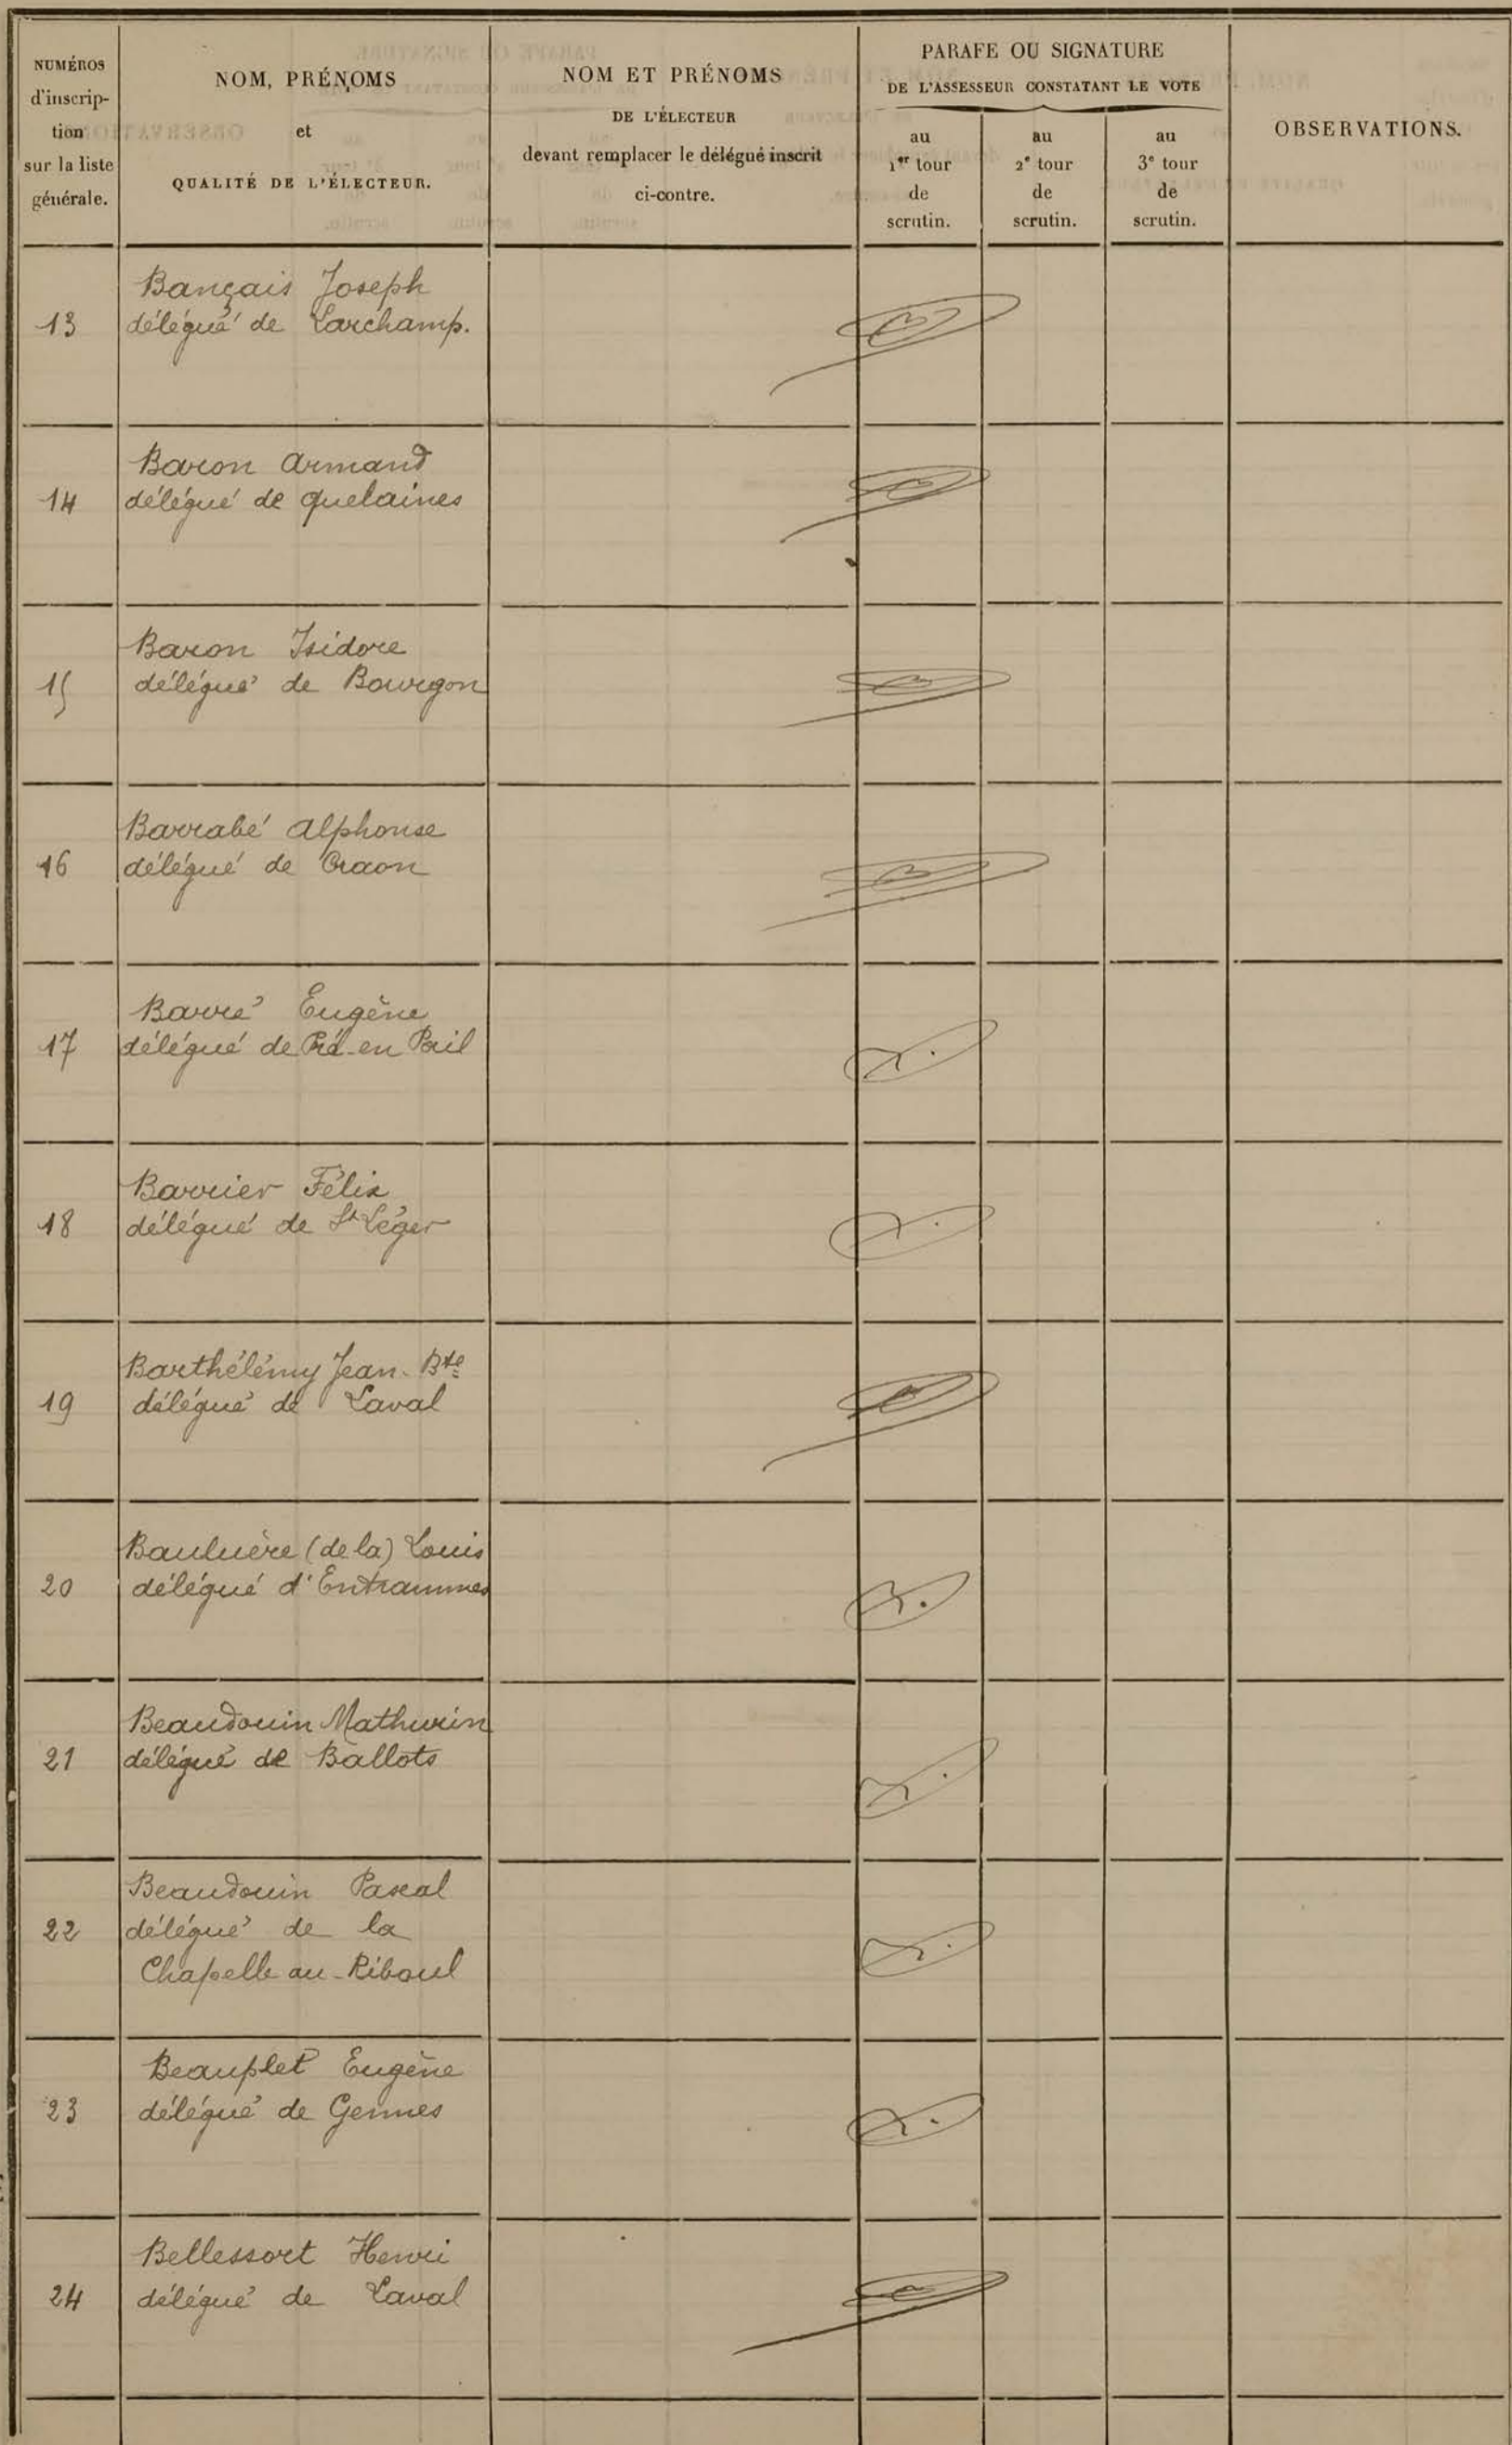 NUMÉROS
d'inscrip-
tion
sur la liste
générale.
NOM, PRÉNOMS
et
QUALITÉ DE L'ÉLECTEUR.
NOM ET PRÉNOMS
DE L'ÉLECTEUR
devant remplacer le délégué inscrit
ci-contre.
PARAFE OU SIGNATURE
DE L'ASSESSEUR CONSTATANT LE VOTE
au
1er tour
de
scrutin.
au
2e tour
de
scrutin.
au
3e tour
de
scrutin.
OBSERVATIONS.
13
Bançais Joseph
délégué de Larchamp.
14
Baron Armand
délégué de Quelaines
15
Baron Isidore
délégué de Bourgon
16
Barrabé Alphonse
délégué de Craon
17
Barré Eugène
délégué de Pré-en Pail
18
Barrier Félix
délégué de St Léger
19
Barthélémy Jean-Bte
délégué de Laval
20
(de la) Louis
délégué d'Entrammes
21
Beaudouin Mathurin
délégué de Ballots
22
Beaudouin Pascal
délégué de la
Chapelle au-Riboul
23
Beauplet Eugène
délégué de Gennes
24
Bellessort Henri
délégué de Laval